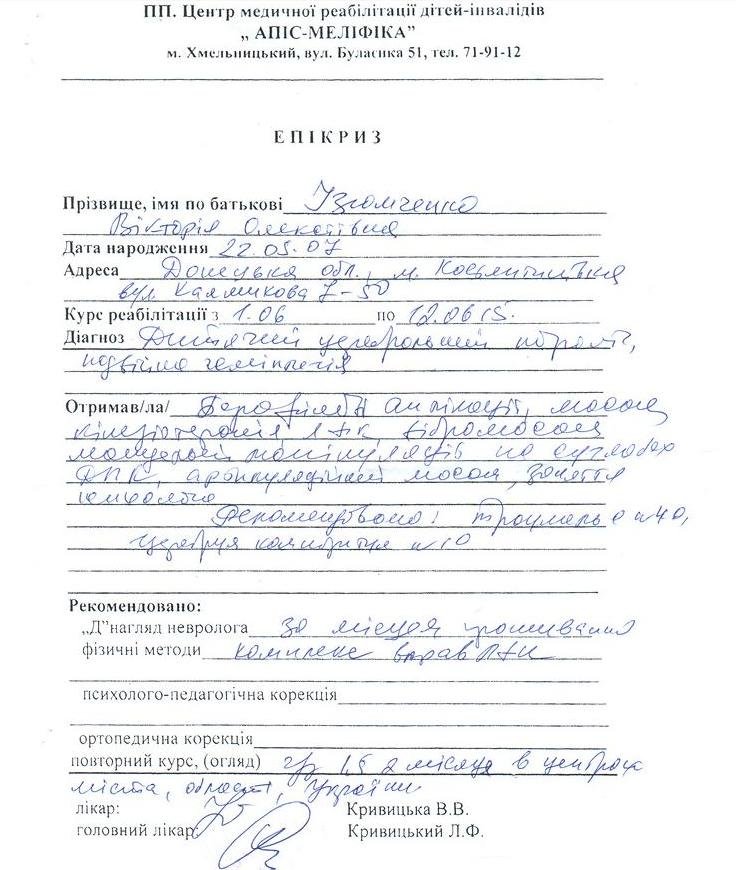 ПП. Центр медичної реабілітації дітей-інвалідів
„ АПІС-МЕЛІФІКА”
м. Хмельницький, вул. Буласика 51, тел. 71-91-12
ЕПІКРИЗ
Прізвище, імя по батькові
Вікторія Олексіївна
Дата народження 22.05.07
Адреса Донецька обл., м. Костянтинівка
вул. Калмикова 7-50
Курс реабілітації з 1.06 по 12.06 15.
Діагноз Дитячий церебральний параліч,
подвійна геміплегія
Отримав/ла/ аплікації, масаж
кінезіотерапія ЛФК, вібромасаж
маніпуляції на суглобах
масаж, заняття
Рекомендовано: траумель с n 40,
композитум n 10
Рекомендовано:
„Д”нагляд невролога за місцем проживання
фізичні методи комплекс вправ ЛФК
психолого-педагогічна корекція
ортопедична корекція
повторний курс, (огляд) 1,5 2 місяця в центрах
міста, області, України
лікар: Кривицька В.В.
головний лікар: Кривицький Л.Ф.